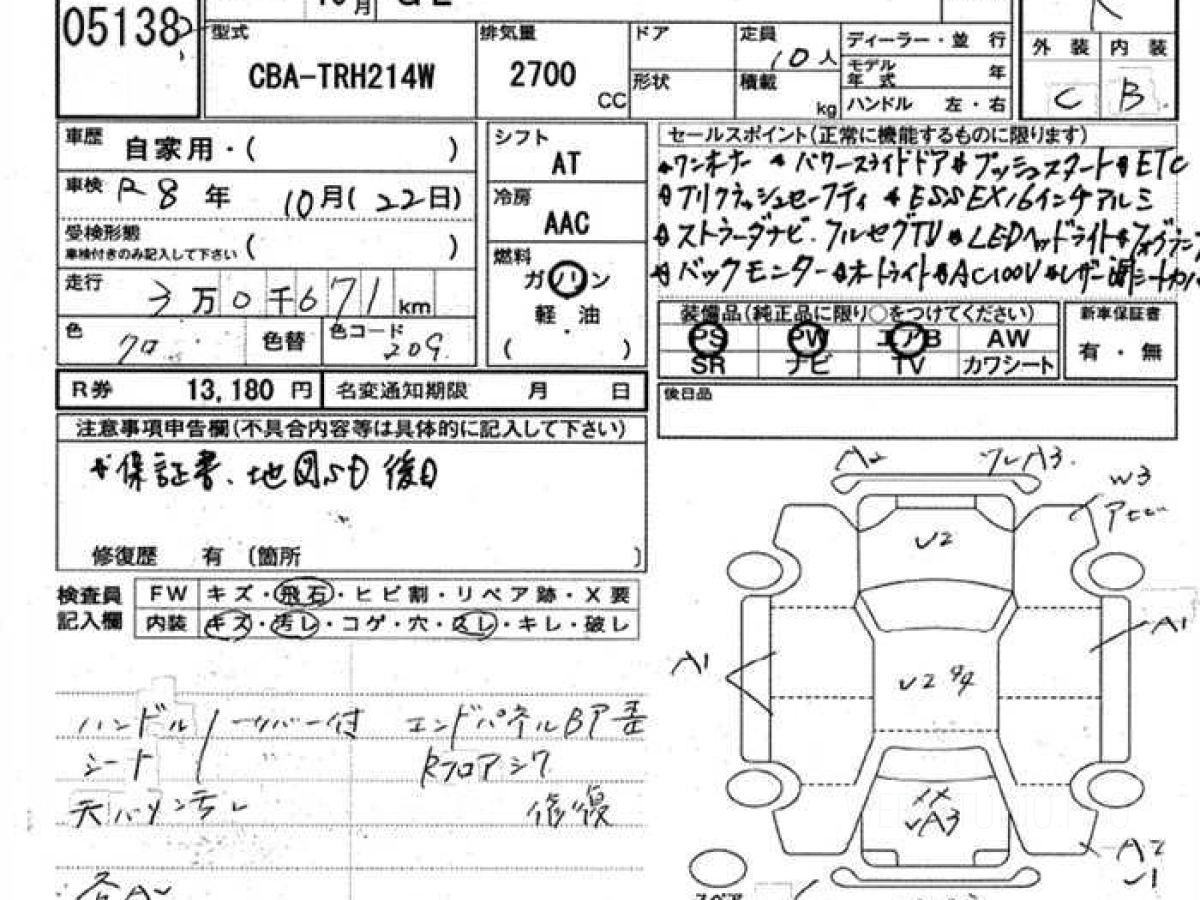 05138
10月 GL
型式 CBA-TRH214W
排気量 2700 CC
ドア
形状
定員 10人
積載 kg
ディーラー・並 行
モデル年式 年
ハンドル 左・右
外装 内装
C B
車歴 自家用・( )
車検 R8年 10月(22日)
受検形態 車検付きのみ記入して下さい ( )
走行 3万0千671km
色 クロ 色替 色コード 209
シフト AT
冷房 AAC
燃料 ガソリン
軽・油
( )
セールスポイント(正常に機能するものに限ります)
ワンオーナー パワースライドドア プッシュスタート ETC
プリクラッシュセーフティ ESSEX16インチアルミ
ストラーダナビ.フルセグTV LEDヘッドライト
バックモニター オートライト AC100V レザー調シートカバー
装備品(純正品に限り○をつけてください)
PS PW エアB AW
SR ナビ TV カワシート
新車保証書
有・無
R券 13,180 円 名変通知期限 月 日
後日品
注意事項申告欄(不具合内容等は具体的に記入して下さい)
保証書、地図SD 後日
修復歴 有 〔箇所 〕
検査員記入欄
FW キズ・飛石・ヒビ割・リペア跡・X要
内装 キズ・汚レ・コゲ・穴・スレ・キレ・破レ
ハンドル カバー付 エンドパネルBP歪
シート 〃 Rフロアシワ
修復
A2 ワレA3.
W3
アセビ
U2
A1 A1
U2
XX
UA3
A2
U1